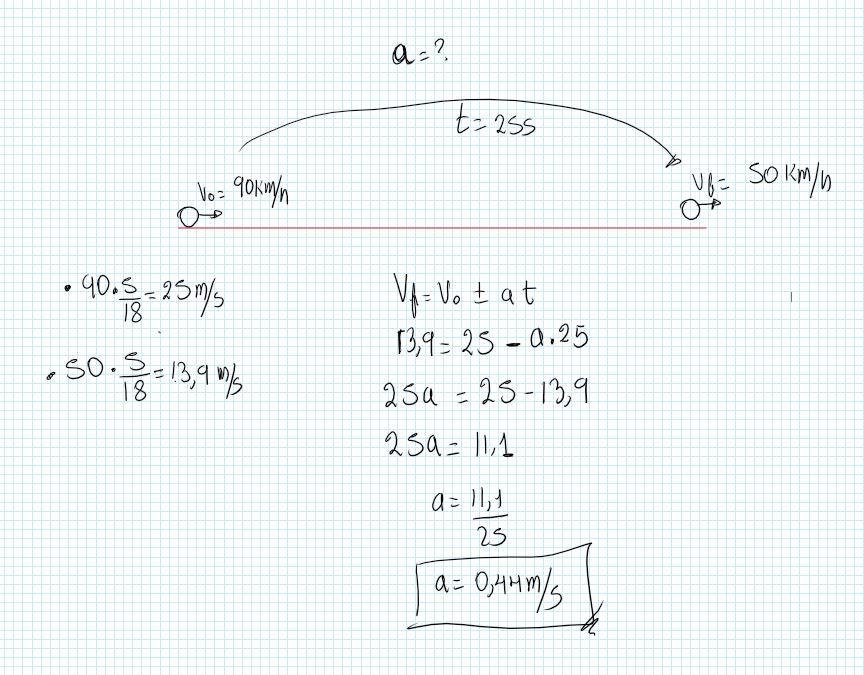 a = ?
t = 25s
V₀ = 90km/h
Vf = 50 Km/h
• 90 . 5/18 = 25 m/s
• 50 . 5/18 = 13,9 m/s
Vf = V₀ ± a t
13,9 = 25 - a.25
25a = 25 - 13,9
25a = 11,1
a = 11,1/25
a = 0,44m/s